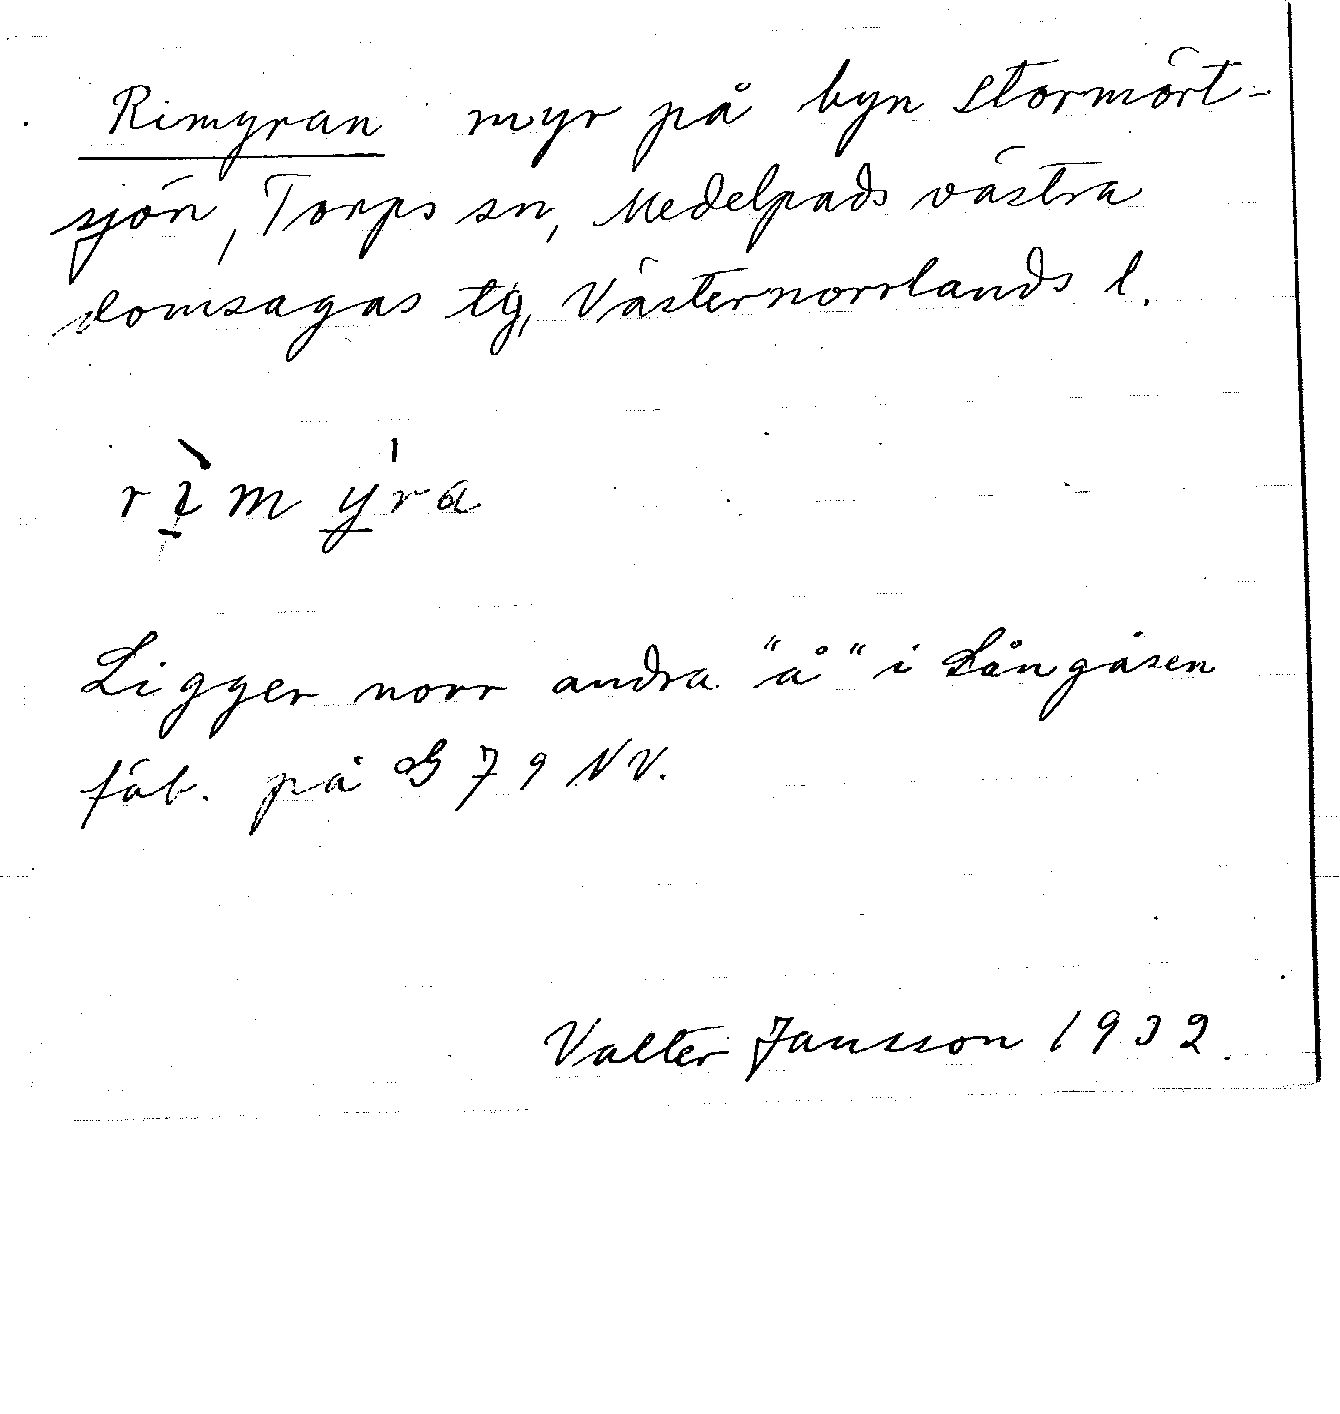 Rimyran myr på byn Stormört-
sjön, Torps sn, Medelpads västra
domsagas tg, Västernorrlands l.
rìm ýra
Ligger norr andra "å" i Långåsen
fäb. på G 79 NV.
Valter Jansson 1932.